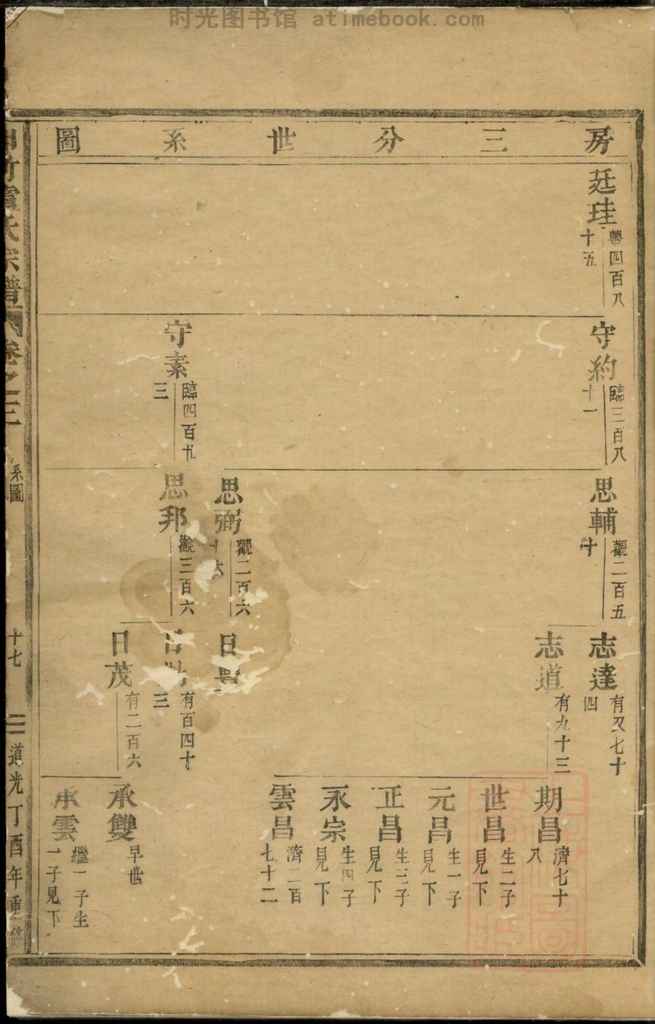 时光图书馆 atimebook.com
房三分世系圖
廷珪
藝四百八
十五
守約
臨三百八
十一
守素
臨四百九
三
思輔
觀二百五
十
思弼
觀二百六
十六
思邦
觀三百六
志達
有又七十
四
志道
有九十三
日
日
有百四十
三
日茂
有二百六
期昌
濟七十
八
世昌
生二子
見下
元昌
生一子
見下
正昌
生三子
見下
永宗
生四子
見下
雲昌
濟二百
七十二
承雙
早世
承雲
繼一子生
一子見下
氏宗譜
卷之三
系圖
十七
道光丁酉年重修